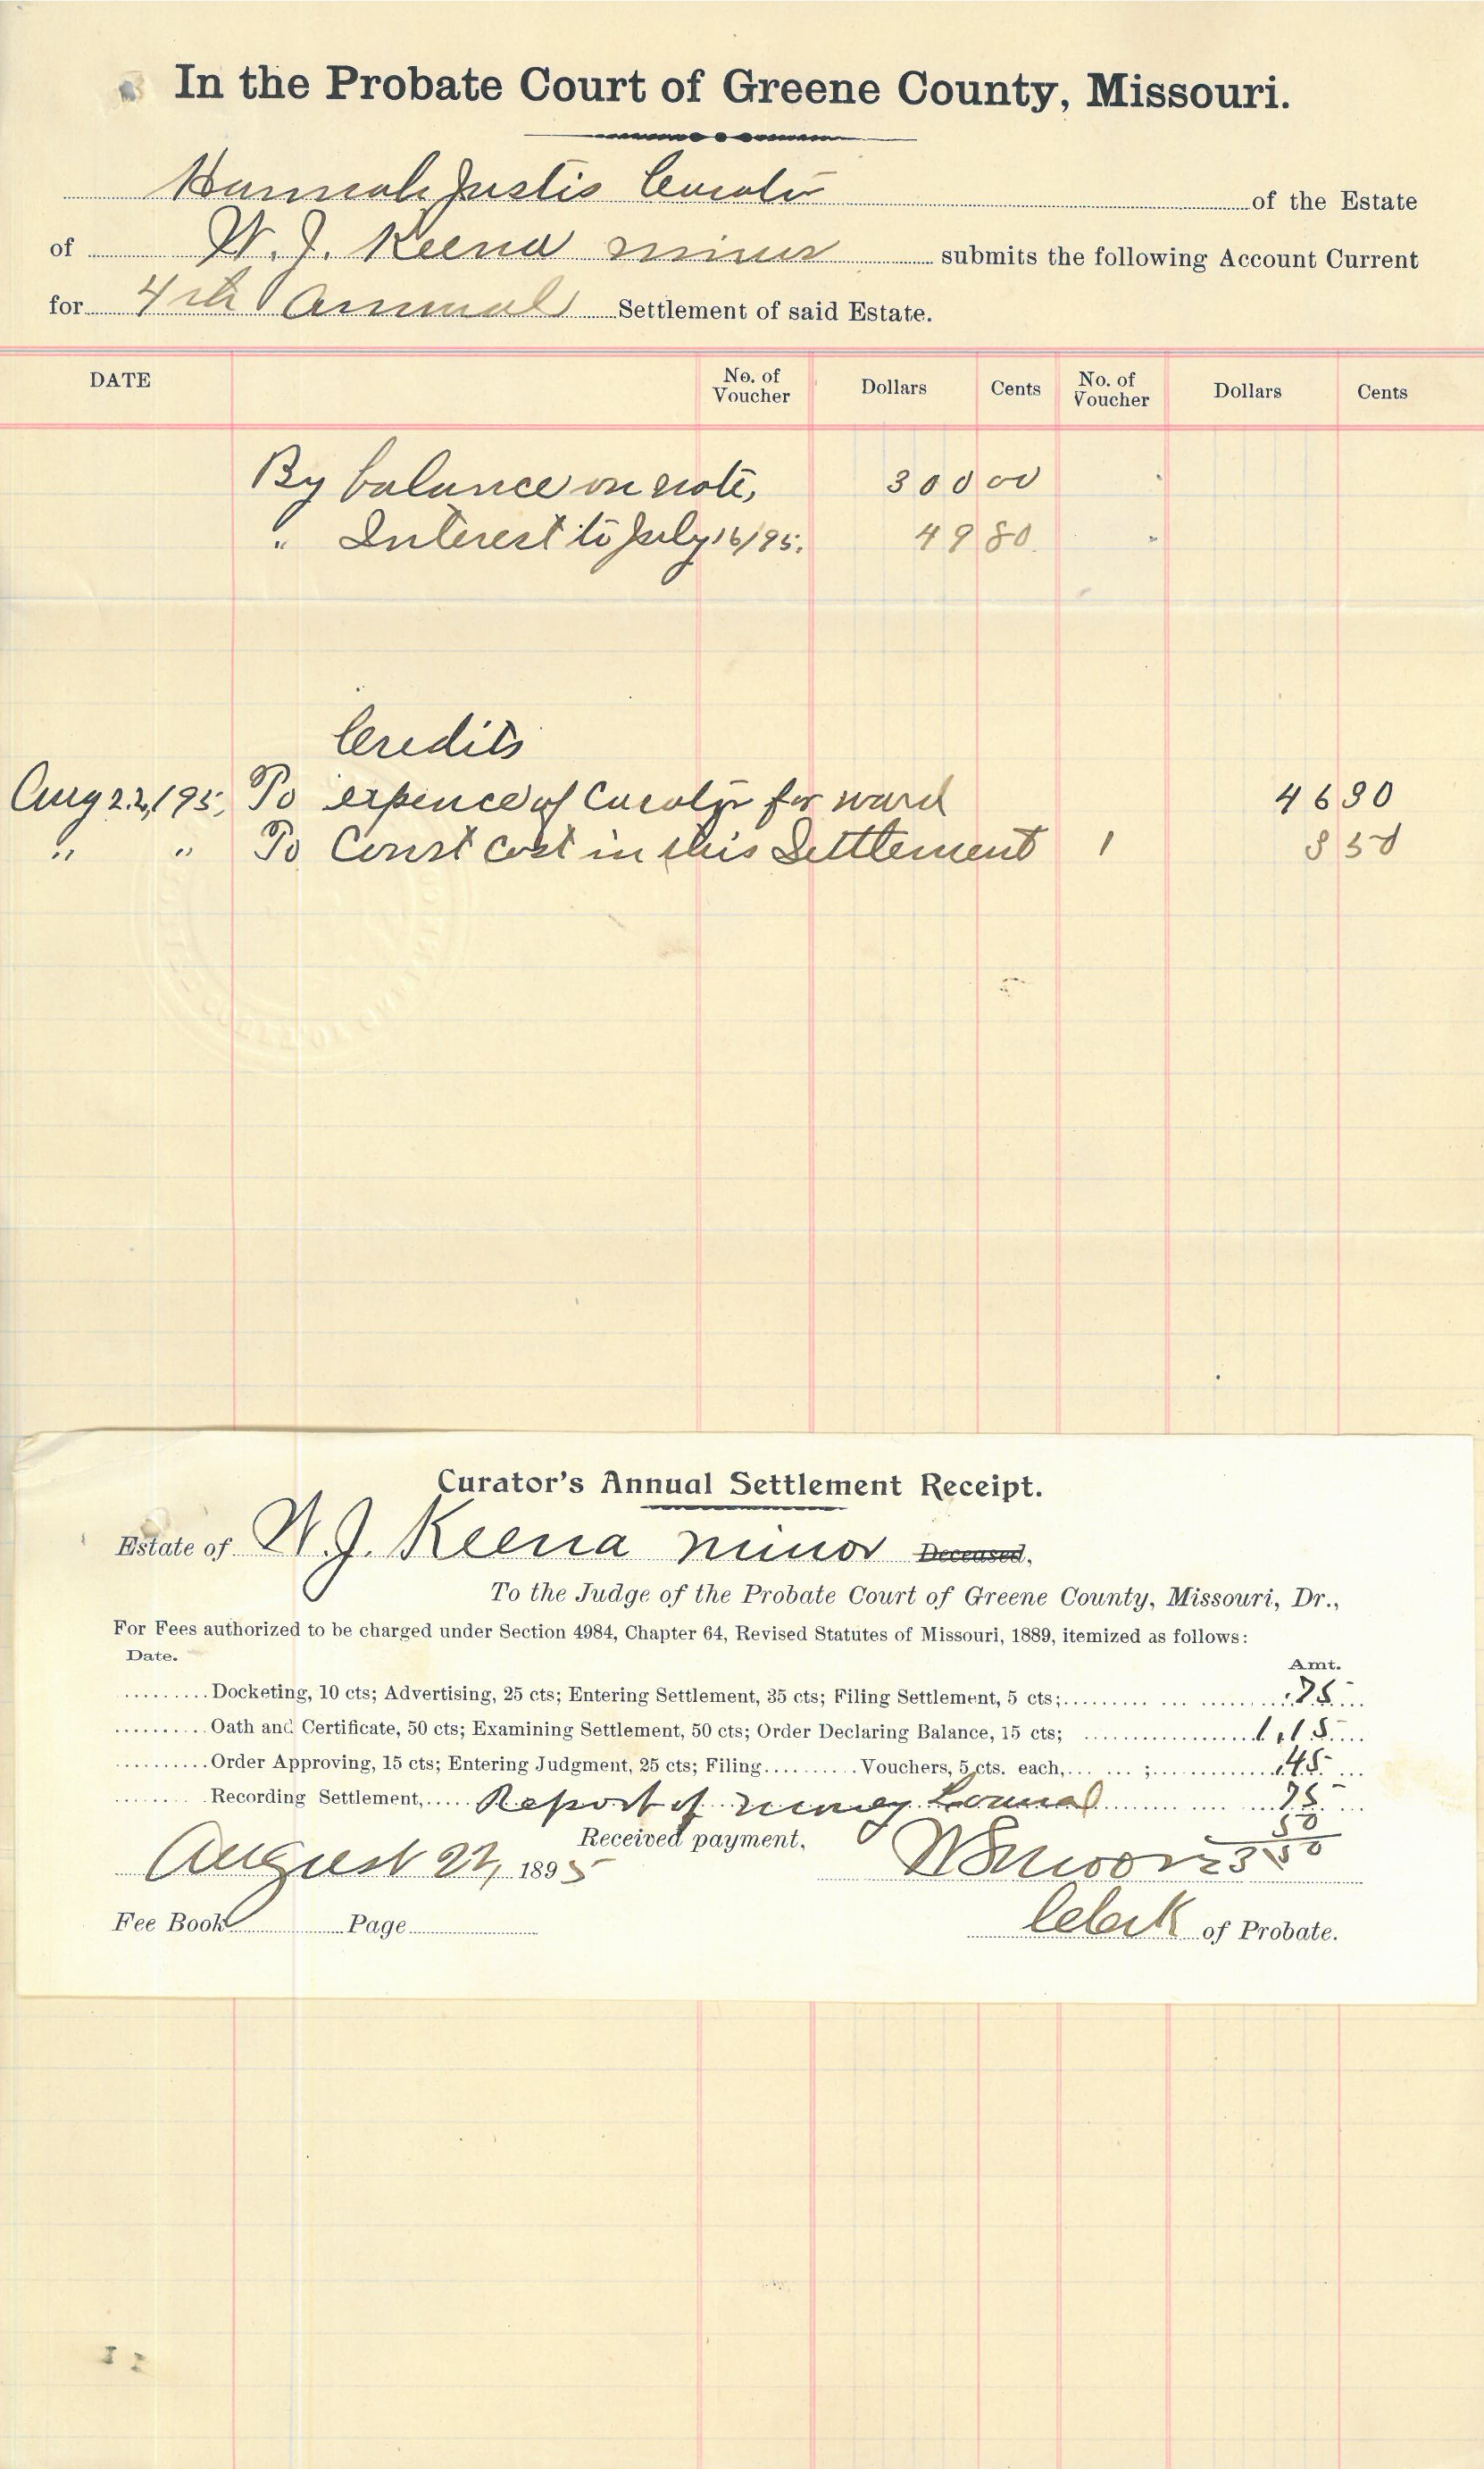 In the Probate Court of Greene County, Missouri.
Hannah Justis Curator of the Estate
of W. J. Keena minor submits the following Account Current
for 4th Annual Settlement of said Estate.
DATE No. of Voucher Dollars Cents No. of Voucher Dollars Cents
By balance on note, 300 00
" Interest to July 16/95. 49 80
Credits
Aug 22, /95, To expence of Curator for ward 46 30
" " To Court cost in this Settlement 1 3 50
Curator's Annual Settlement Receipt.
Estate of W. J. Keena minor Deceased,
To the Judge of the Probate Court of Greene County, Missouri, Dr.,
For Fees authorized to be charged under Section 4984, Chapter 64, Revised Statutes of Missouri, 1889, itemized as follows:
Date. Amt.
Docketing, 10 cts; Advertising, 25 cts; Entering Settlement, 35 cts; Filing Settlement, 5 cts; .75
Oath and Certificate, 50 cts; Examining Settlement, 50 cts; Order Declaring Balance, 15 cts; 1.15
Order Approving, 15 cts; Entering Judgment, 25 cts; Filing Vouchers, 5 cts. each, ; .45
Recording Settlement, Report of money Loaned 75
50
Received payment, 3 50
August 22, 1895
Fee Book Page Clerk of Probate.